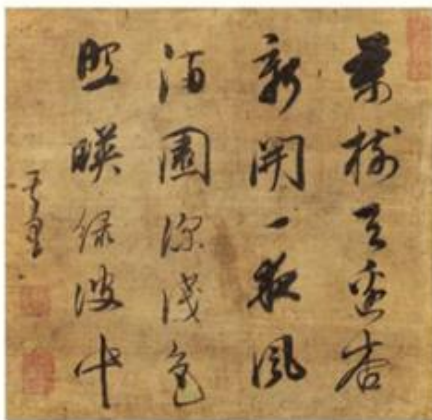 萬樹天邊杏
新開一夜風
滿園深淺色
照暎綠波中
其昌